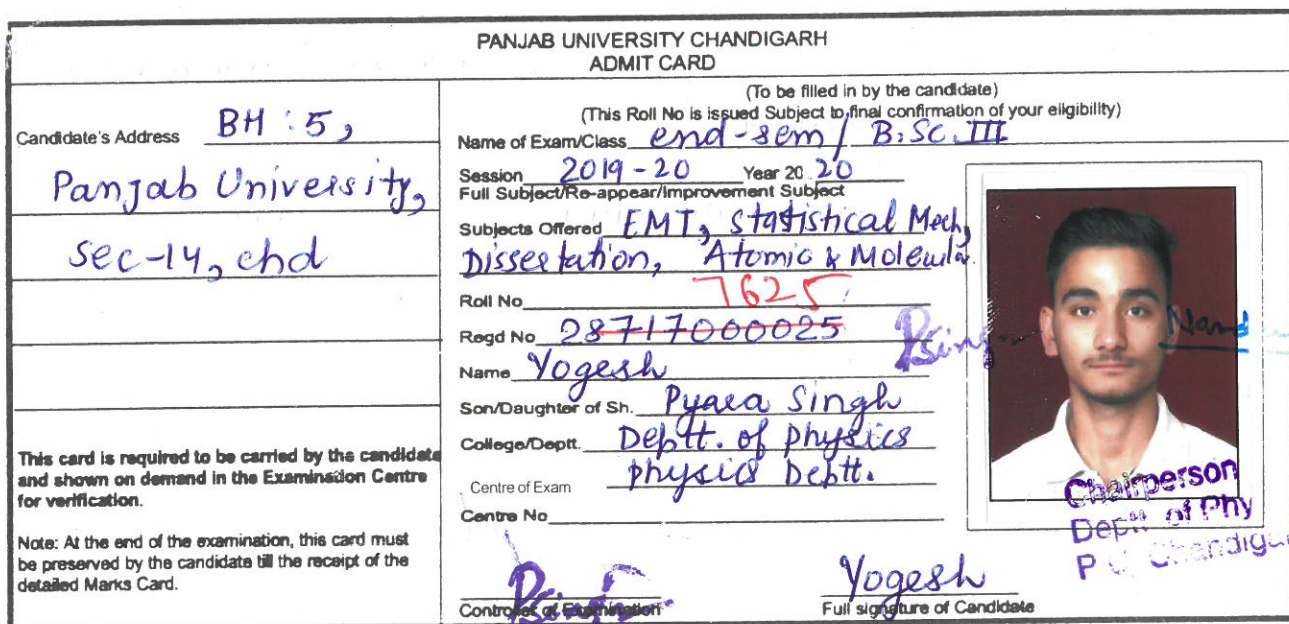 PANJAB UNIVERSITY CHANDIGARH
ADMIT CARD
Candidate's Address BH : 5,
Panjab University,
Sec-14, chd
This card is required to be carried by the candidate
and shown on demand in the Examination Centre
for verification.
Note: At the end of the examination, this card must
be preserved by the candidate till the receipt of the
detailed Marks Card.
(To be filled in by the candidate)
(This Roll No is issued Subject to final confirmation of your eligibility)
Name of Exam/Class end-sem / B.Sc. III
Session 2019-20 Year 20 20
Full Subject/Re-appear/Improvement Subject
Subjects Offered EMT, Statistical Mech,
Dissertation, Atomic & Molecular
Roll No 7625
Regd No 28717000025
Name Yogesh
Son/Daughter of Sh. Pyara Singh
College/Deptt. Deptt. of physics
Centre of Exam physics Deptt.
Centre No
Controller of Examination
Yogesh
Full signature of Candidate
Chairperson
Deptt. of Phy
P.U. Chandigar